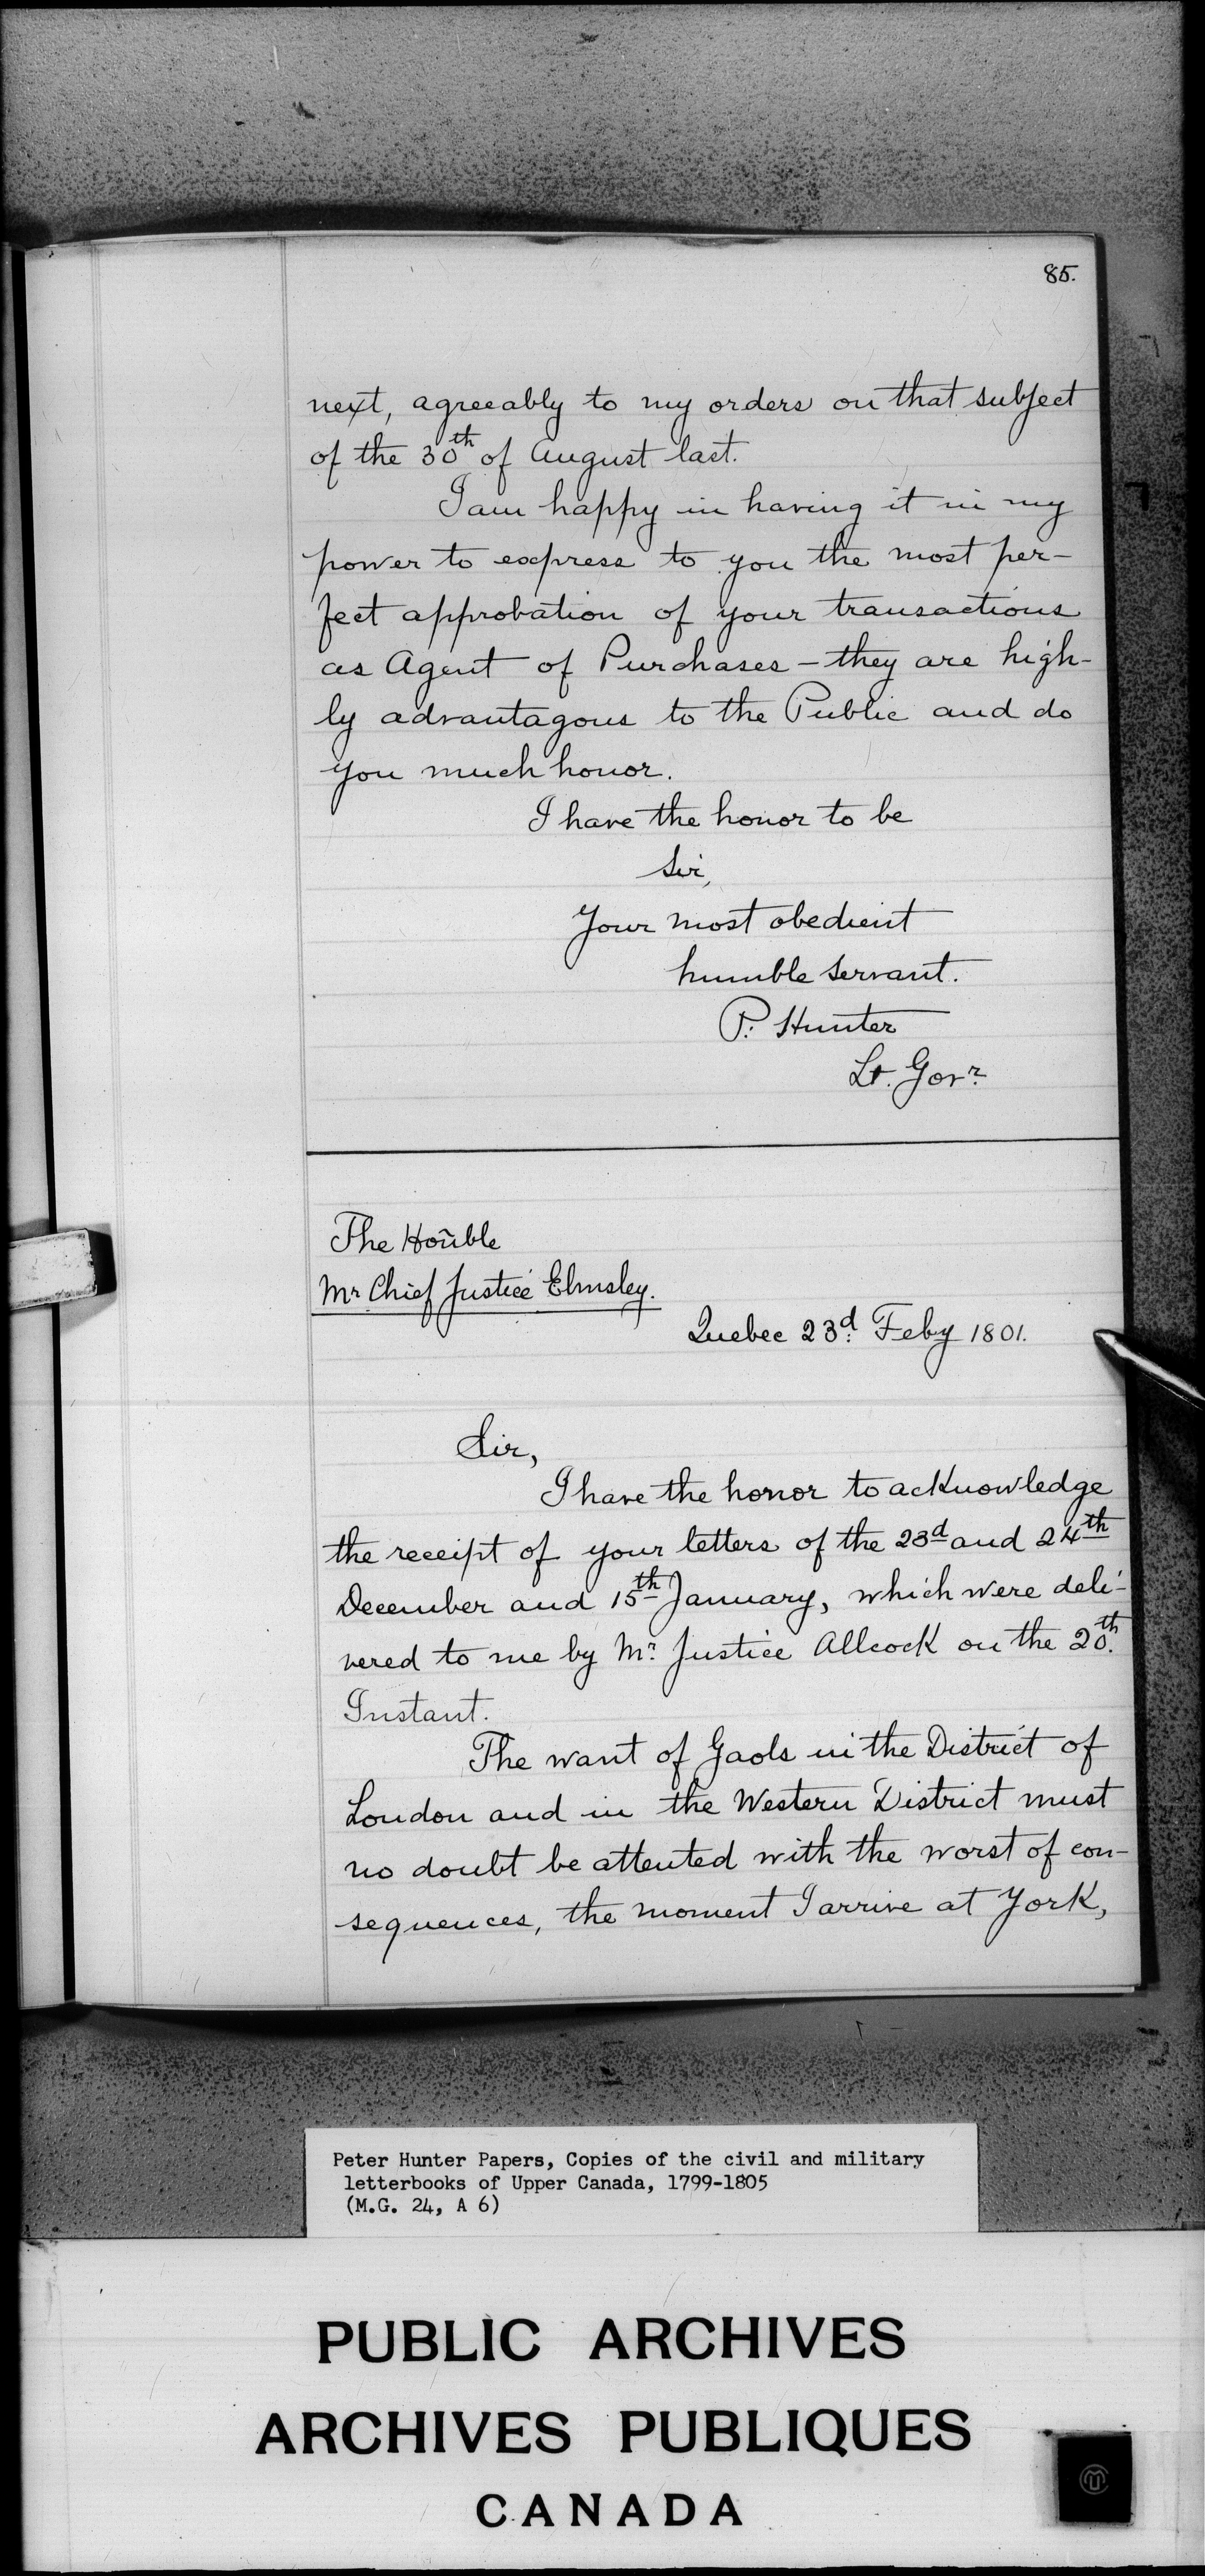 85.
next, agreeably to my orders on that subject
of the 30th of August last.
I am happy in having it in my
power to express to you the most per-
fect approbation of your transactions
as Agent of Purchases - they are high-
ly advantagous to the Public and do
you much honor.
I have the honor to be
Sir,
Your most obedient
humble servant.
P. Hunter
Lt. Govr.
The Honble
Mr Chief Justice Elmsley.
Quebec 23d. Feby 1801.
Sir,
I have the honor to acknowledge
the receipt of your letters of the 23d and 24th
December and 15th January, which were deli-
vered to me by Mr. Justice Allcock on the 20th.
Instant.
The want of Gaols in the District of
London and in the Western District must
no doubt be attented with the worst of con-
sequences, the moment I arrive at York,
Peter Hunter Papers, Copies of the civil and military
letterbooks of Upper Canada, 1799-1805
(M.G. 24, A 6)
PUBLIC ARCHIVES
ARCHIVES PUBLIQUES
CANADA